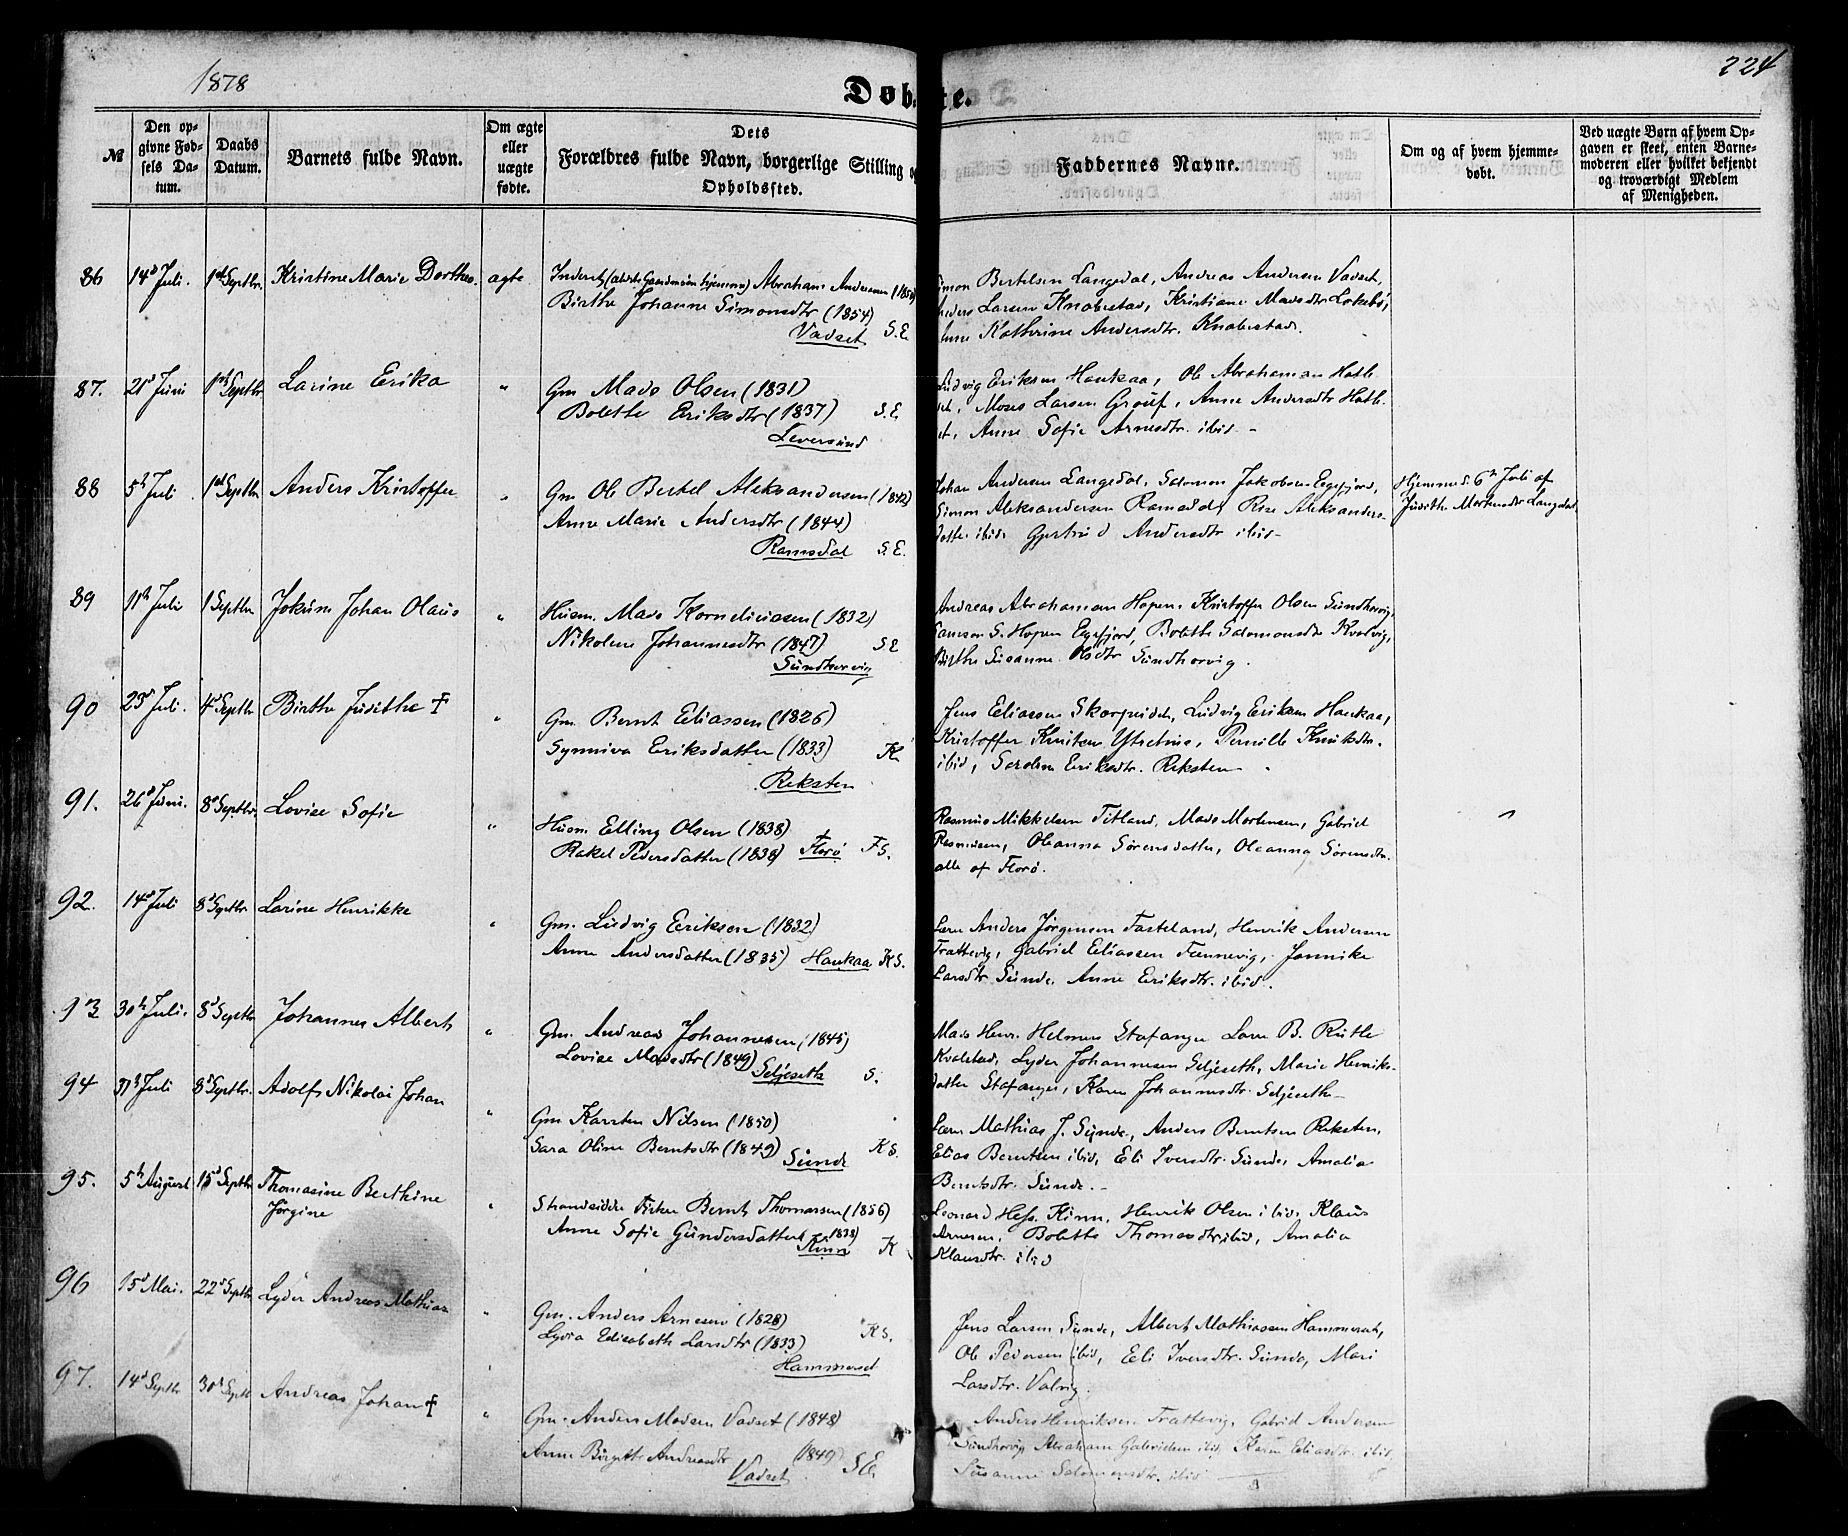 1878
224
Døbte.
№
Den opgivne Fødsels Datum.
Daabs Datum.
Barnets fulde Navn.
Om ægte eller uægte fødte.
Dets Forældres fulde Navn, borgerlige Stilling og Opholdssted.
Faddernes Navne.
Om og af hvem hjemmedøbt.
Ved uægte Børn af hvem Opgaven er skeet, enten Barnemoderen eller hvilket bekjendt og troværdigt Medlem af Menigheden.
86 14d Juli. 1st Septbr. Kristine Marie Dorthea ægte
Abraham Andersen (1850)
Birthe Johanne Simonsdtr (1854)
Vadset S.E.
Simon Bertelsen Langedal, Andreas Andersen Vadset,
Anders Larsen Knabestad, Kristiane Madsdtr. Løkebø,
Anne Kathrine Andersdtr. Knabestad.
87. 21d Juni 1st Septbr Larine Erika "
Gm Mads Olsen (1831)
Bolethe Eriksdtr (1837) S.E.
Leversund
Ludvig Eriksen Haukaa, Ole Abrahamsen Hatle-
set, Moses Larsen Grouf, Anne Andersdtr Hatle-
set, Anne Sofie Arnesdtr. ibid. -
88 5h Juli 1st Septbr Anders Kristoffer "
Gm Ole Bertel Aleksandersen (1842)
Anne Marie Andersdtr (1844)
Ramsdal S.E.
Johan Andersen Langedal, Salomon Jakobsen Egefjord,
Simon Aleksandersen Ramsdal, Aleksanders-
datter ibid. Gjertrud Andersdtr ibid-
Hjemmed. 6h Juli af
Judithe Mortensdtr Langedal
89 11h Juli 1 Septbr Jokum Johan Olaus "
Husm. Mads Korneliussen (1832)
Nikoline Johannesdtr (1847) S.E
Sundhorvig
Andreas Abrahamsen Hopen, Kristoffer Olsen Sundhorvig,
Samson S. Hopen Egefjord, Bolethe Salomonsdtr Kvalvig,
Birthe Susanne Olsdtr Sundhorvig.
90 23d Juli. 4d Septbr Birthe Judithe † "
Gm. Bernt Eliassen (1826)
Synneva Eriksdatter (1833) K.
Reksten
Jens Eliassen Skorpeidet, Ludvig Eriksen Haukaa,
Kristoffer Knutsen Ytrehus, Pernille Knutsdtr.
ibid, Eriksdtr. Reksten
91. 26d Juni. 8d Septbr. Lovise Sofie "
Husm. Elling Olsen (1838)
Rakel Pedersdatter (1838) Florø F.S.
Rasmus Mikkelsen Titland, Mads Mortensen, Gabriel
Rasmussen, Oleanna Sørensdatter, Oleanna Sørensdtr.
alle af Florø.
92. 14d Juli 8d Septbr. Larine Henrikke "
Gm. Ludvig Eriksen (1832)
Anne Andersdatter (1835) Haukaa K.S.
Anders Jørgensen Fasteland, Henrik Andersen
Trattevig, Gabriel Eliassen Fannevig, Jannike
Larsdtr. Sunde, Anne Eriksdtr. ibid.
93 30h Juli. 8d Septbr Johannes Albert "
Gm. Andreas Johannesen (1845)
Lovise Madsdtr (1849) Seljeseth S.
Mads Henr. Helmers Stafanger B. Rutle
Kvalstad, Lyder Johannesen Seljeseth, Marie Henriks-
datter Stafanger, Karen Johannesdtr. Seljeseth-
94 31h Juli 8d Septbr. Adolf Nikolai Johan "
Gm Karsten Nilsen (1850)
Sara Oline Berntsdtr (1849) Sunde K.S.
Mathias J. Sunde, Anders Berntsen Reksten,
Elias Berntsen ibid, Eli Iversdtr. Sunde, Amalia
Berntsdtr. Sunde. -
95. 5h August 15d Septbr Thomasine Berthine
Jørgine "
Strandsidder Bernt Thomassen (1856)
Anne Sofie Gundersdatter (1838)
Kinn K
Leonard Hess Kinn, Henrik Olsen ibid, Klaus
Arnesen, Bolette Thomasdtr. ibid, Amalia
Klausdtr. ibid
96 15d Mai. 22d Septbr Lyder Andreas Mathias "
Gm. Anders Arnesen (1828)
Lydia Elisabeth Larsdtr (1833) K.S.
Hammerset
Jens Larsen Sunde, Albert Mathiassen Hammerset,
Ole Pedersen ibid, Eli Iversdtr. Sunde, Mari
Larsdtr. Valvig.
97. 14d Septbr 30d Septbr Andreas Johan † "
Gm. Anders Madsen Vadset (1848)
Anne Birgitte Andreasdtr (1849) S.E.
Vadset
Anders Henriksen Trattevig, Gabriel Andersen
Sundhorvig Abraham Gabrielsen ibid, Karen Eliasdtr. ibid,
Susanne Salomonsdtr. ibid